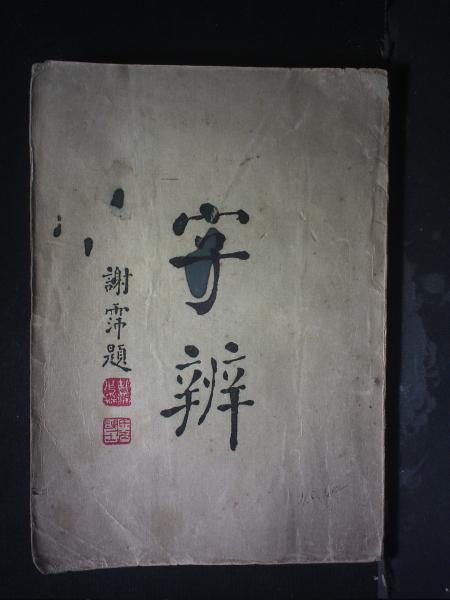 字辨
謝霈題